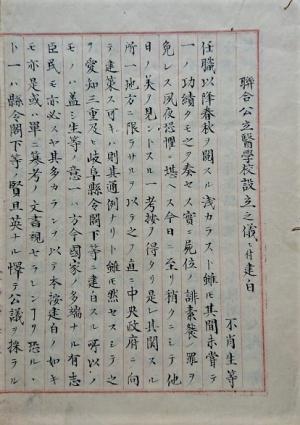 聯合公立醫學校設立之儀ニ付建白
不肖生等
任職以降春秋ヲ閱スル浅カラスト雖モ其間未嘗テ
一ノ功績タモ之ヲ奏セス實ニ尸位ノ誹素餐ノ罪ヲ
免レス夙夜恐懼ニ堪ヘス今日ニ至リ稍クニシテ他
日ノ美ヲ見ントスル一考按ヲ得タリ是レ其関スル
所一地方ニ限ラサルヲ以テ之ヲ直ニ中央政府ニ向
テ建策ス可キハ則其通例ナリト雖然セスシテ之
ヲ愛知三重及ヒ岐阜縣令閣下等ニ建白スル所以ノ
モノハ蓋シ生等ノ意一ハ方今國家ノ多端ナル有志
臣民モ亦必スヤ其多カランヲ以テ本按建白ノ如キ
モ亦是或ハ單ニ尋考ノ文書視セラレンヿヲ恐ル・
ト一ハ縣令閣下等ノ賢且英ナル懌テ公議ヲ採テル